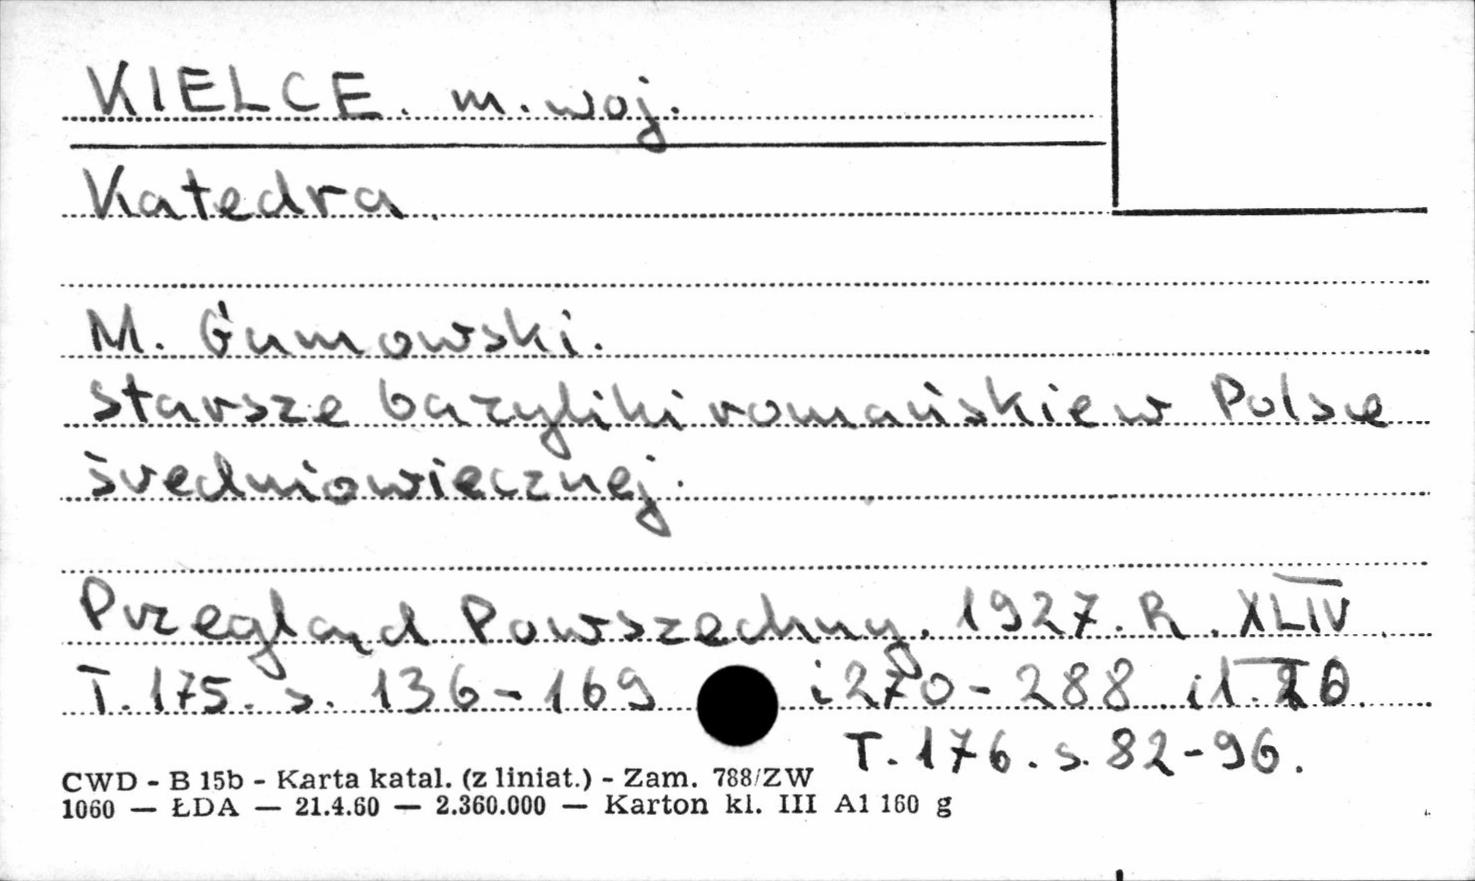 KIELCE. m. woj.
Katedra.
M. Gumowski.
Starsze bazyliki romańskie w Polsce
średniowiecznej.
Przegląd Powszechny. 1927. R. XLIV.
T. 175. s. 136-169 i 270-288 il.
T. 176. s. 82-96.
CWD - B 15b - Karta katal. (z liniat.) - Zam. 788/ZW
1060 — ŁDA — 21.4.60 — 2.360.000 — Karton kl. III A1 160 g